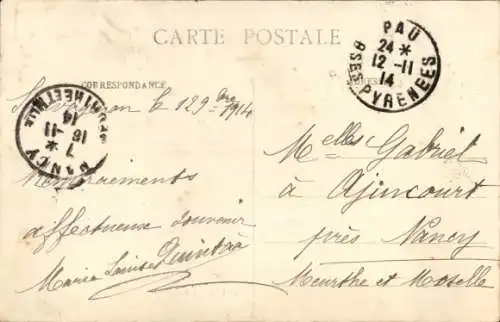 CARTE POSTALE
CORRESPONDANCE
PAU
24 *
12 -11
14
BSES PYRENEES
le 12 9bre 1914
NANCY
7 *
16 -11
14
MEURTHE ET MLLE
Remerciements
affectueux souvenir
Marie Louise Quintaà
Melles Gabriel
à Ajincourt
près Nancy
Meurthe et Moselle